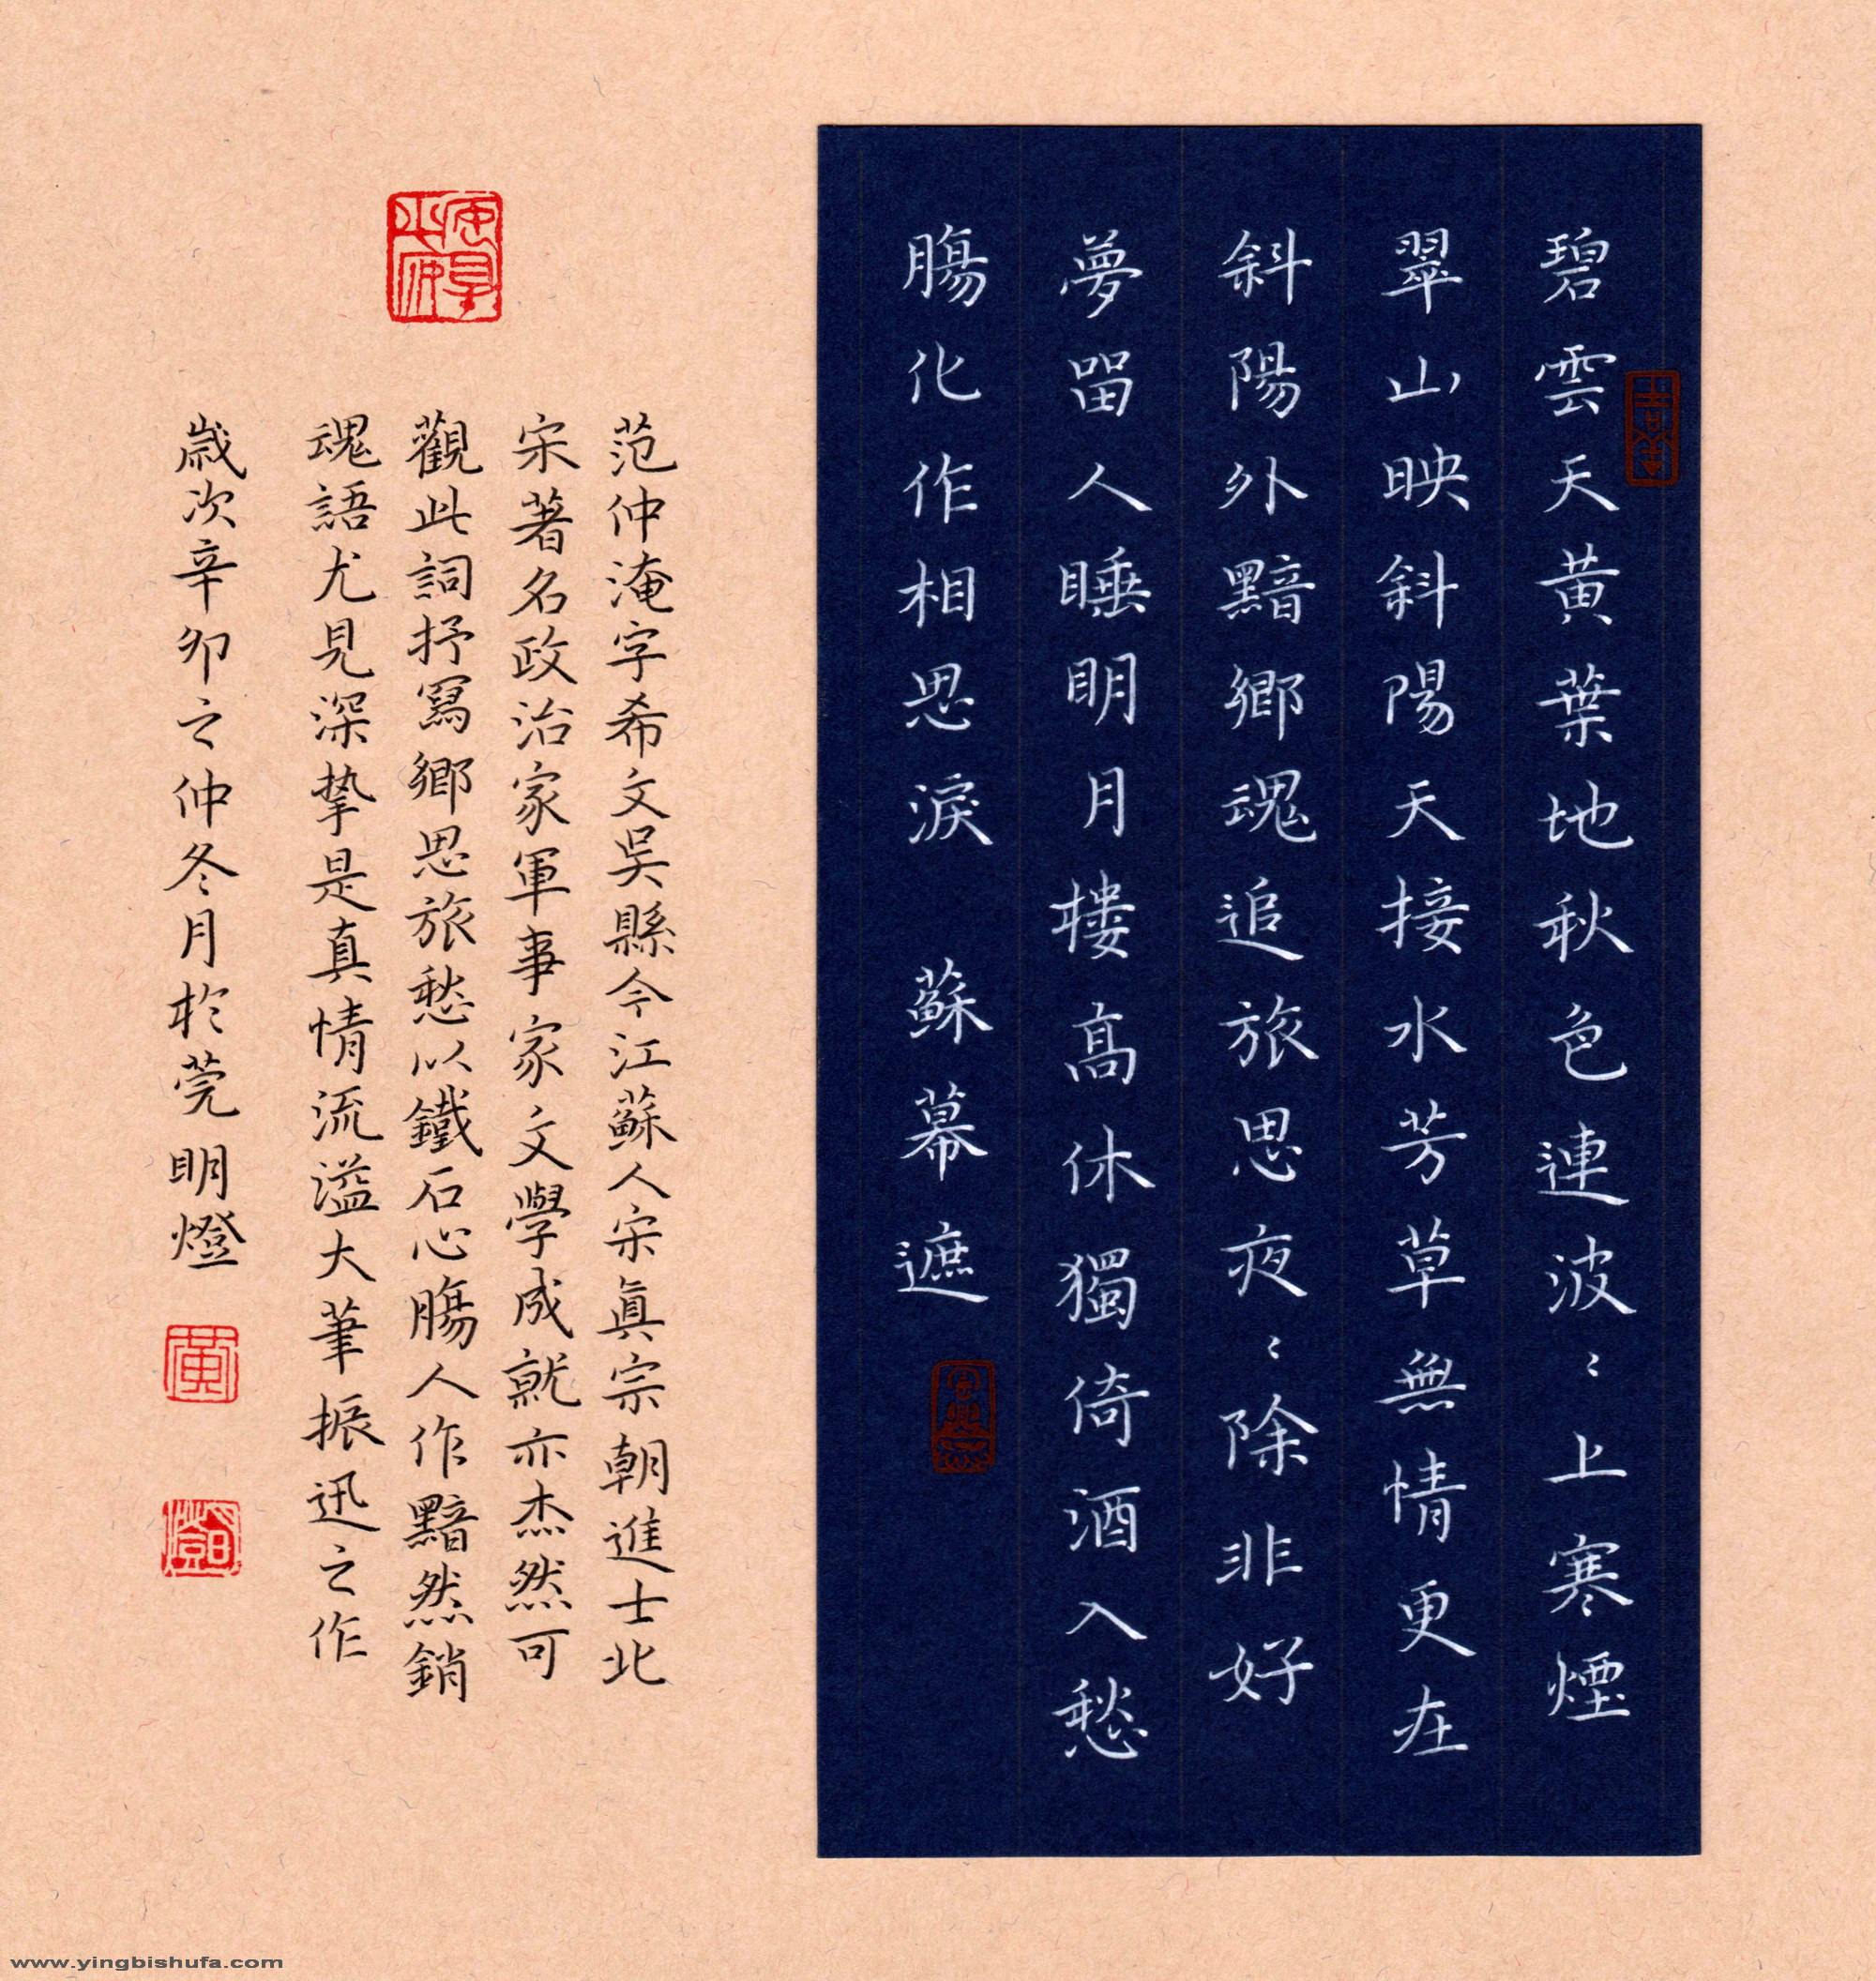 碧雲天黃葉地秋色連波〻上寒煙
翠山映斜陽天接水芳草無情更在
斜陽外黯鄉魂追旅思夜〻除非好
夢留人睡明月樓高休獨倚酒入愁
腸化作相思淚 蘇幕遮
范仲淹字希文吳縣今江蘇人宋眞宗朝進士北
宋著名政治家軍事家文學成就亦杰然可
觀此詞抒寫鄉思旅愁以鐵石心腸人作黯然銷
魂語尤見深摯是真情流溢大筆振迅之作
歲次辛卯之仲冬月於莞明燈
黃
www.yingbishufa.com